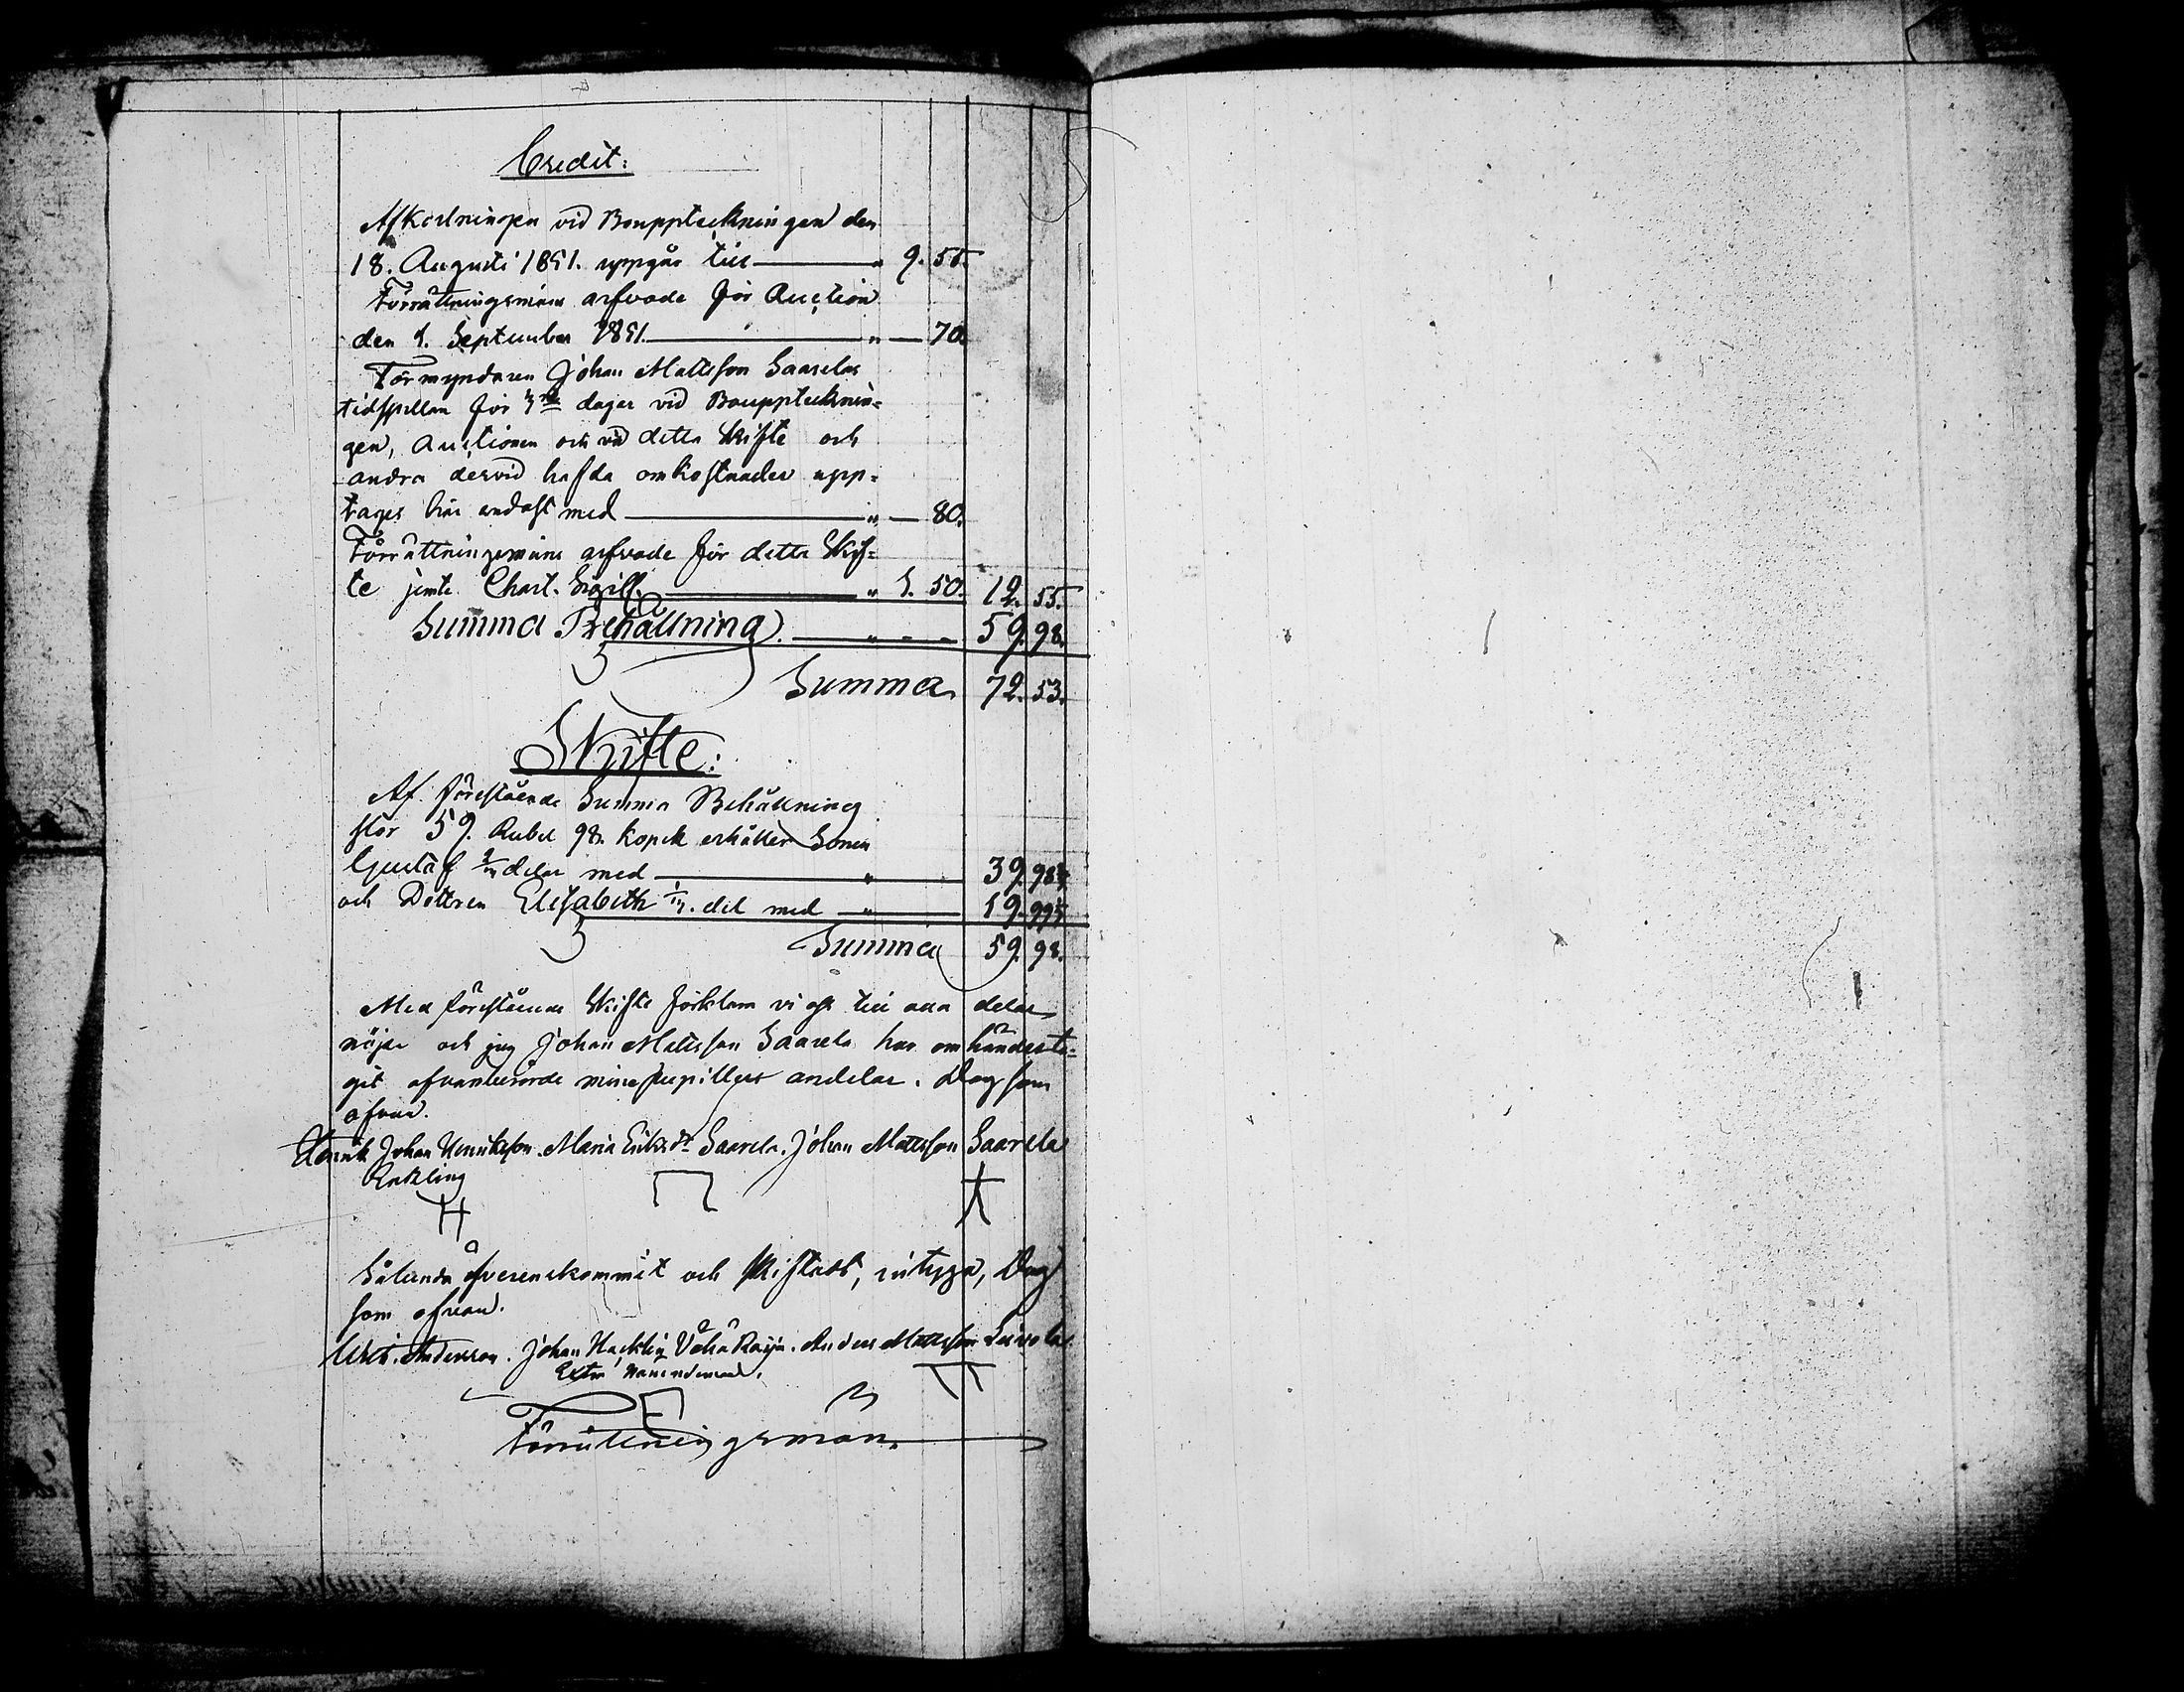 Credit:
Afkortningen vid Bouppteckningen den
18. Augusti 1851. uppgår till " 9. 55.
Förrättningsmäns arfvode för Auction
den 1. September 1851. " — 70.
Förmyndaren Johan Mattsson Saarelas
tidspillan för 3ne dagar vid Boupptecknin=
gen, Auctionen och vid detta skifte och
andra dervid hafda omkostnader upp=
tages här endast med " — 80.
Förrättningsmäns arfvode för detta Skif=
te jemte Chart. Sigill. " 1. 50. 12. 55.
Summa Behållning. " - - 59. 98.
Summa 72. 53.
Skifte:
Af förestående Summa Behållning
stor 59. Rubel 98. kopek erhåller Sonen
Gustaf 2/3 delar med " 39. 98 2/3
och Dottren Elisabeth 1/3. del med " 19. 99 1/3
Summa 59. 98.
Med förestående Skifte förklara vi oss till alla delar
nöjde och jag Johan Mattsson Saarela har omhänderta=
git ofvanberörde mine pupillers andelar. Dag som
ofvan.
Henrik Johan Henriksson. Maria Eriksdr Saarela. Johan Mattsson Saarela
Enkling
Sålunda öfverenskommit och skiftadt, intyga, Dag
som ofvan.
Anderson. Johan Hacklin Vähä Raija. Anders Mattsson
Extra Nämndeman.
Förrättningsmän.